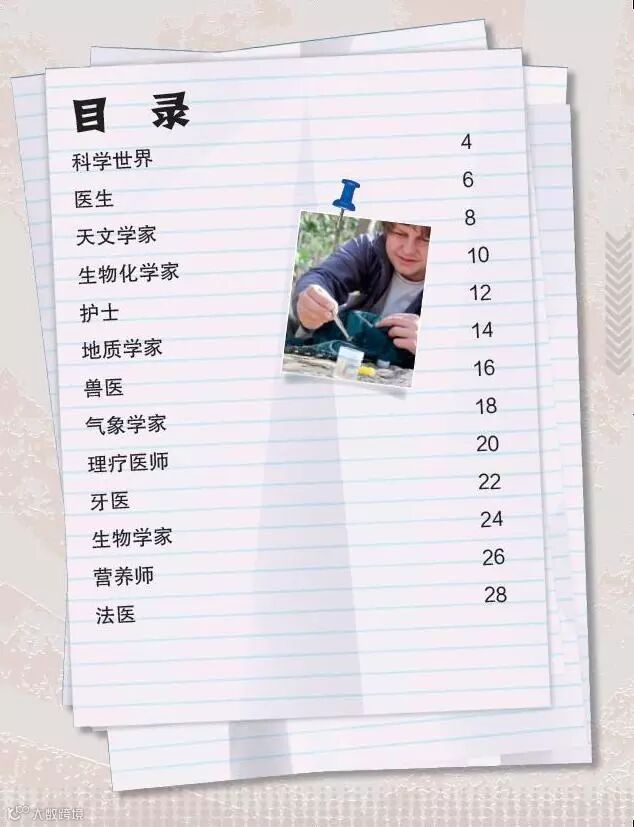 目录
科学世界 4
医生 6
天文学家 8
生物化学家 10
护士 12
地质学家 14
兽医 16
气象学家 18
理疗医师 20
牙医 22
生物学家 24
营养师 26
法医 28
大数跨境